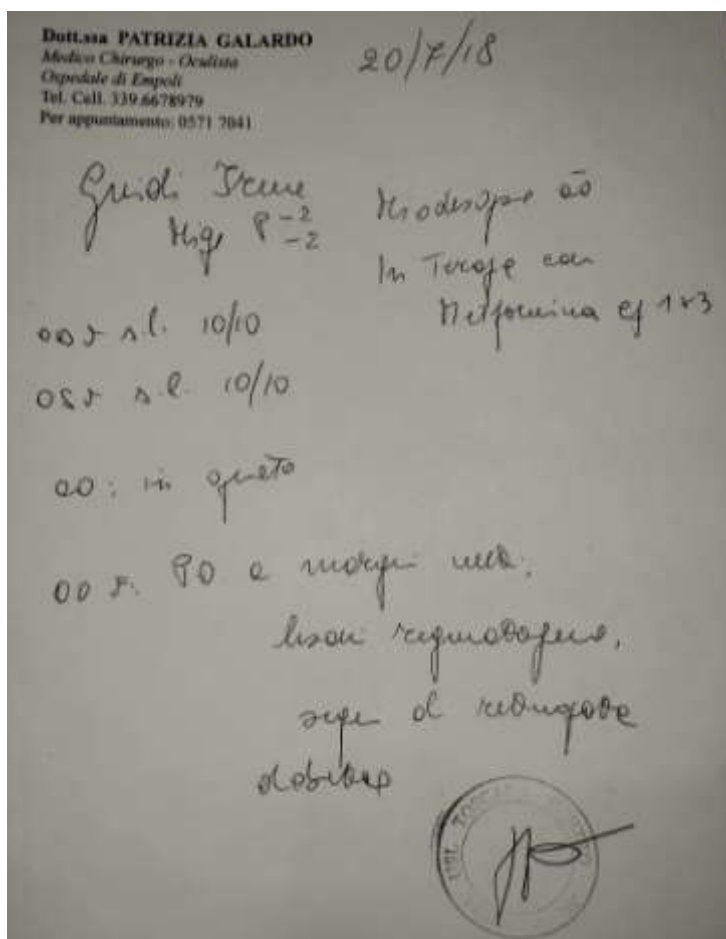 Dott.ssa PATRIZIA GALARDO
Medico Chirurgo - Oculista
Ospedale di Empoli
Tel. Cell. 339.6678979
Per appuntamento: 0571 7041
20/7/18
Guidi Irene
-2
-2
Miodesopsie
In Terapia con
Metformina 1x3
s.l. 10/10
s.l. 10/10
OO: in quieto
OO a margini netti,
lesioni regmatogene,
segni di retinopatia
diabetica